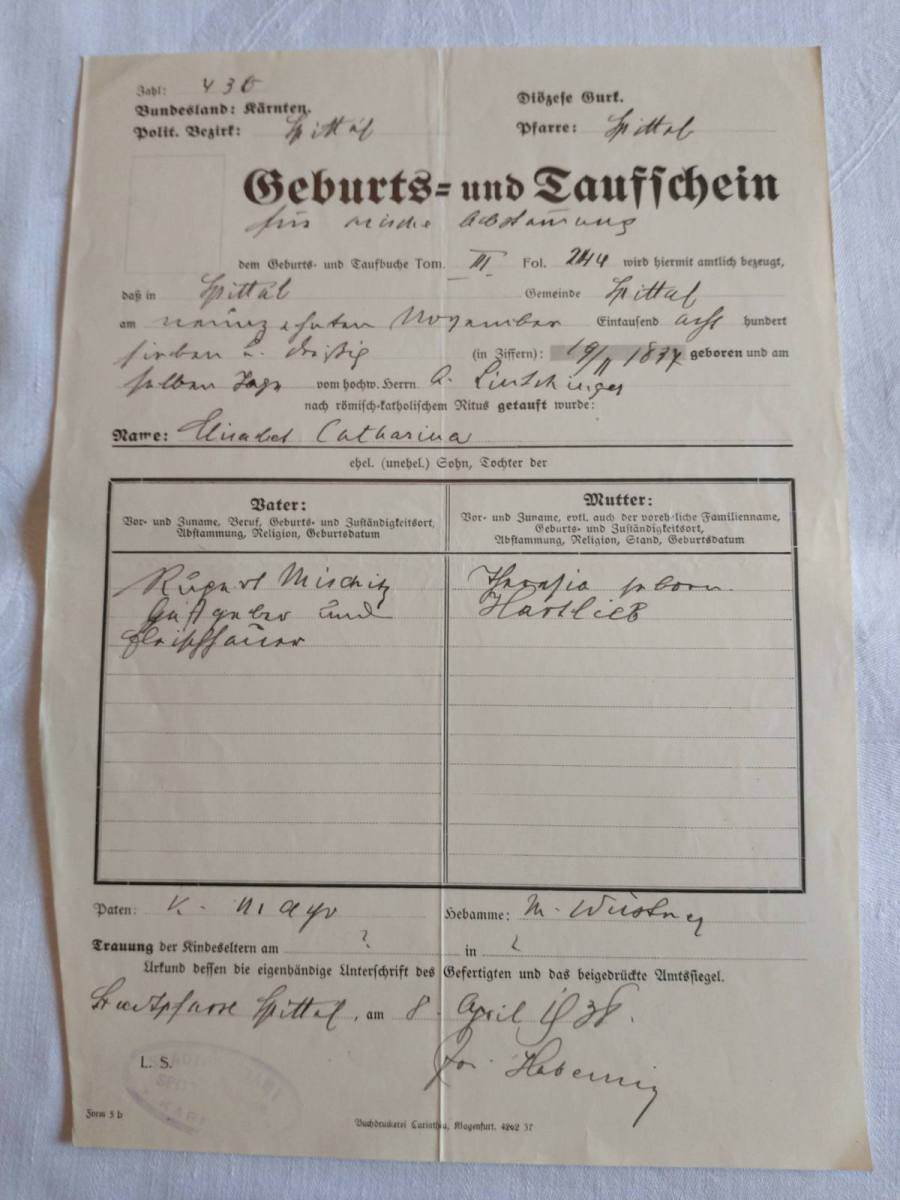 Zahl: 430
Bundesland: Kärnten. Diözese Gurk.
Polit. Bezirk: Spittal Pfarre: Spittal
Geburts- und Taufschein
für arische Abstammung
dem Geburts- und Taufbuche Tom. III Fol. 244 wird hiermit amtlich bezeugt,
daß in Spittal Gemeinde Spittal
am neunzehnten November Eintausend acht hundert
sieben u. dreißig (in Ziffern): 19/11 1837 geboren und am
selben Tage vom hochw. Herrn A.
nach römisch-katholischem Ritus getauft wurde:
Name: Elisabet Catharina
ehel. (unehel.) Sohn, Tochter der
Vater: Mutter:
Vor- und Zuname, Beruf, Geburts- und Zuständigkeitsort, Vor- und Zuname, evtl. auch der voreheliche Familienname,
Abstammung, Religion, Geburtsdatum Geburts- und Zuständigkeitsort,
Abstammung, Religion, Stand, Geburtsdatum
Rupert Mischitz Theresia geborn.
Gastgeber und Hartlieb
Fleischhauer
Paten: Hebamme: M.
Trauung der Kindeseltern am ? in ?
Urkund dessen die eigenhändige Unterschrift des Gefertigten und das beigedrückte Amtssiegel.
Stadtpfarre Spittal, am 8. April 1938.
L. S.
Form 5 b Buchdruckerei Carinthia, Klagenfurt. 4262 37